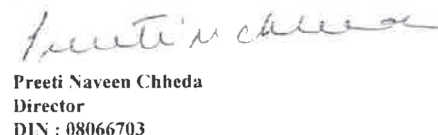 Preeti N Chheda
Preeti Naveen Chheda
Director
DIN : 08066703